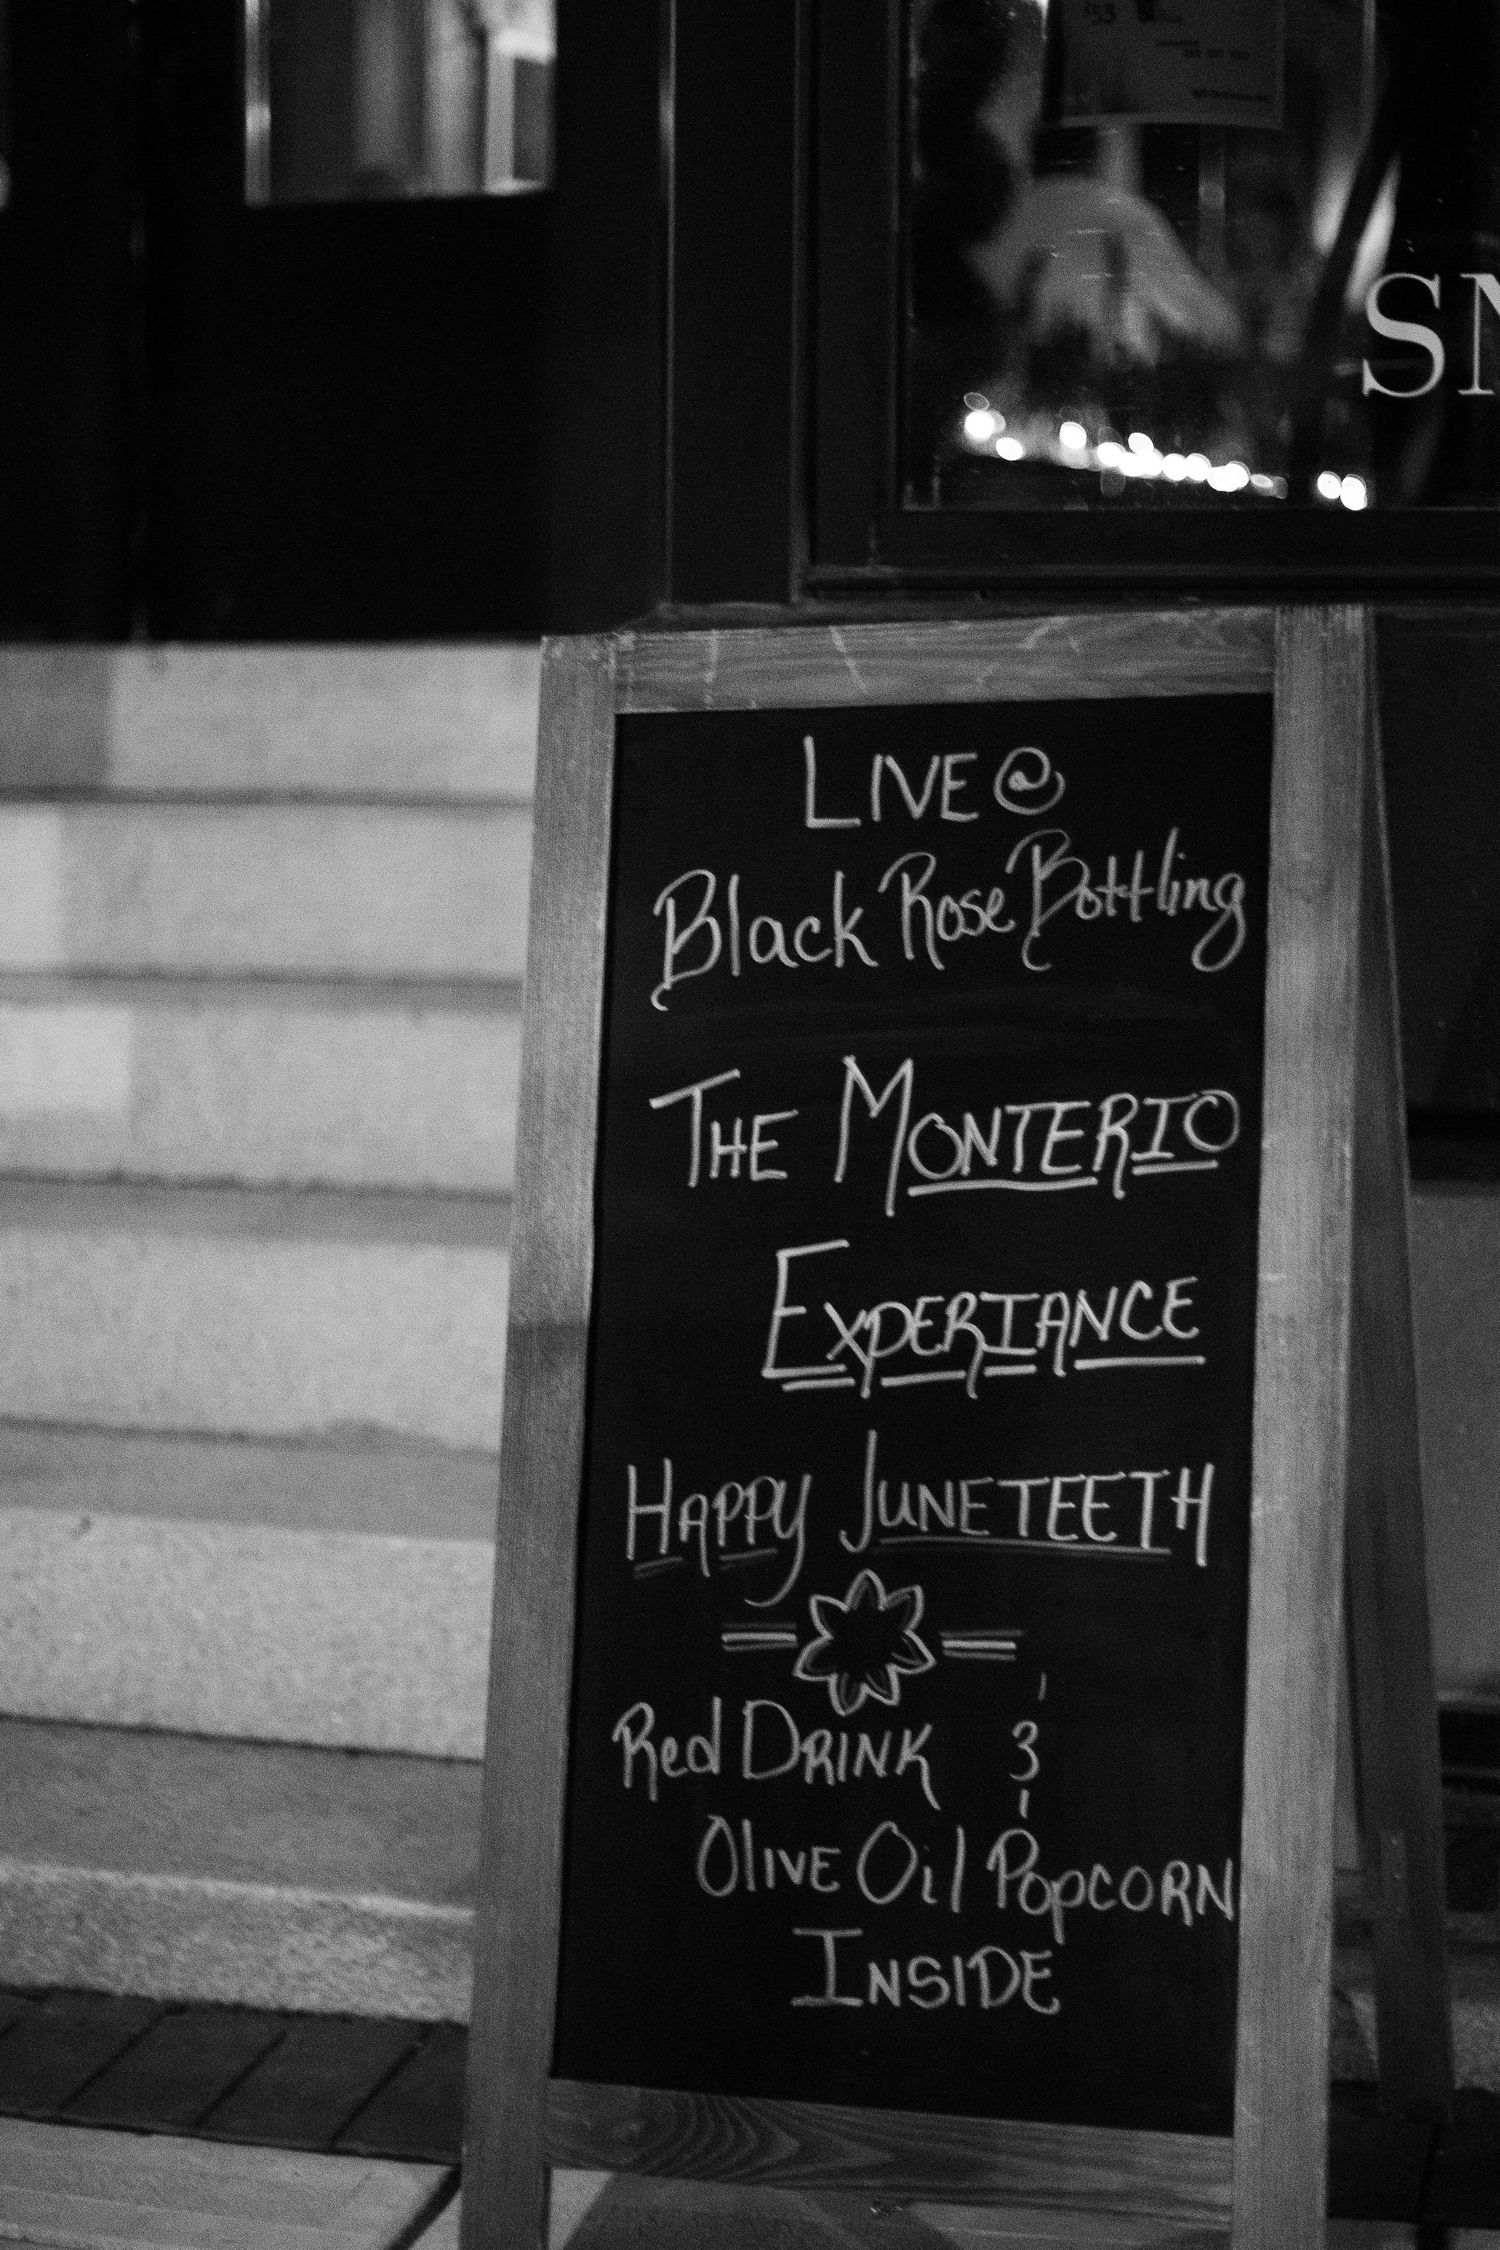 SN
LIVE @
Black Rose Bottling
THE MONTERIO
EXPERIANCE
HAPPY JUNETEETH
Red DRINK &
OLIVE Oil POPCORN
INSIDE